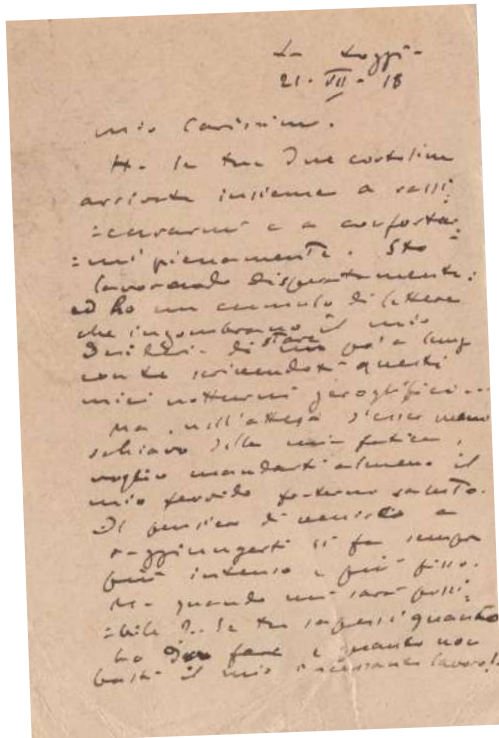 La Loggia
21 - VII - 18
mio Carissimo.
Ho le tue due cartoline
arrivate insieme a rassi=
=curarmi e a conforta=
=rmi pienamente. Sto
lavorando disperatamente:
ed ho un cumulo di lettere
che ingombrano il mio
di stare un po' a lungo
con te scrivendoti questi
miei notturni geroglifici...
Ma, nell'attesa d'esser meno
schiavo della mia fatica,
voglio mandarti almeno il
mio fervido fraterno saluto.
Il pensiero di venirti a
raggiungerti si fa sempre
più intenso e più fisso.
Ma quando mi sarà possi=
=bile?.. Se tu sapessi quanto
ho da fare e quanto non
basti il mio incessante lavoro!